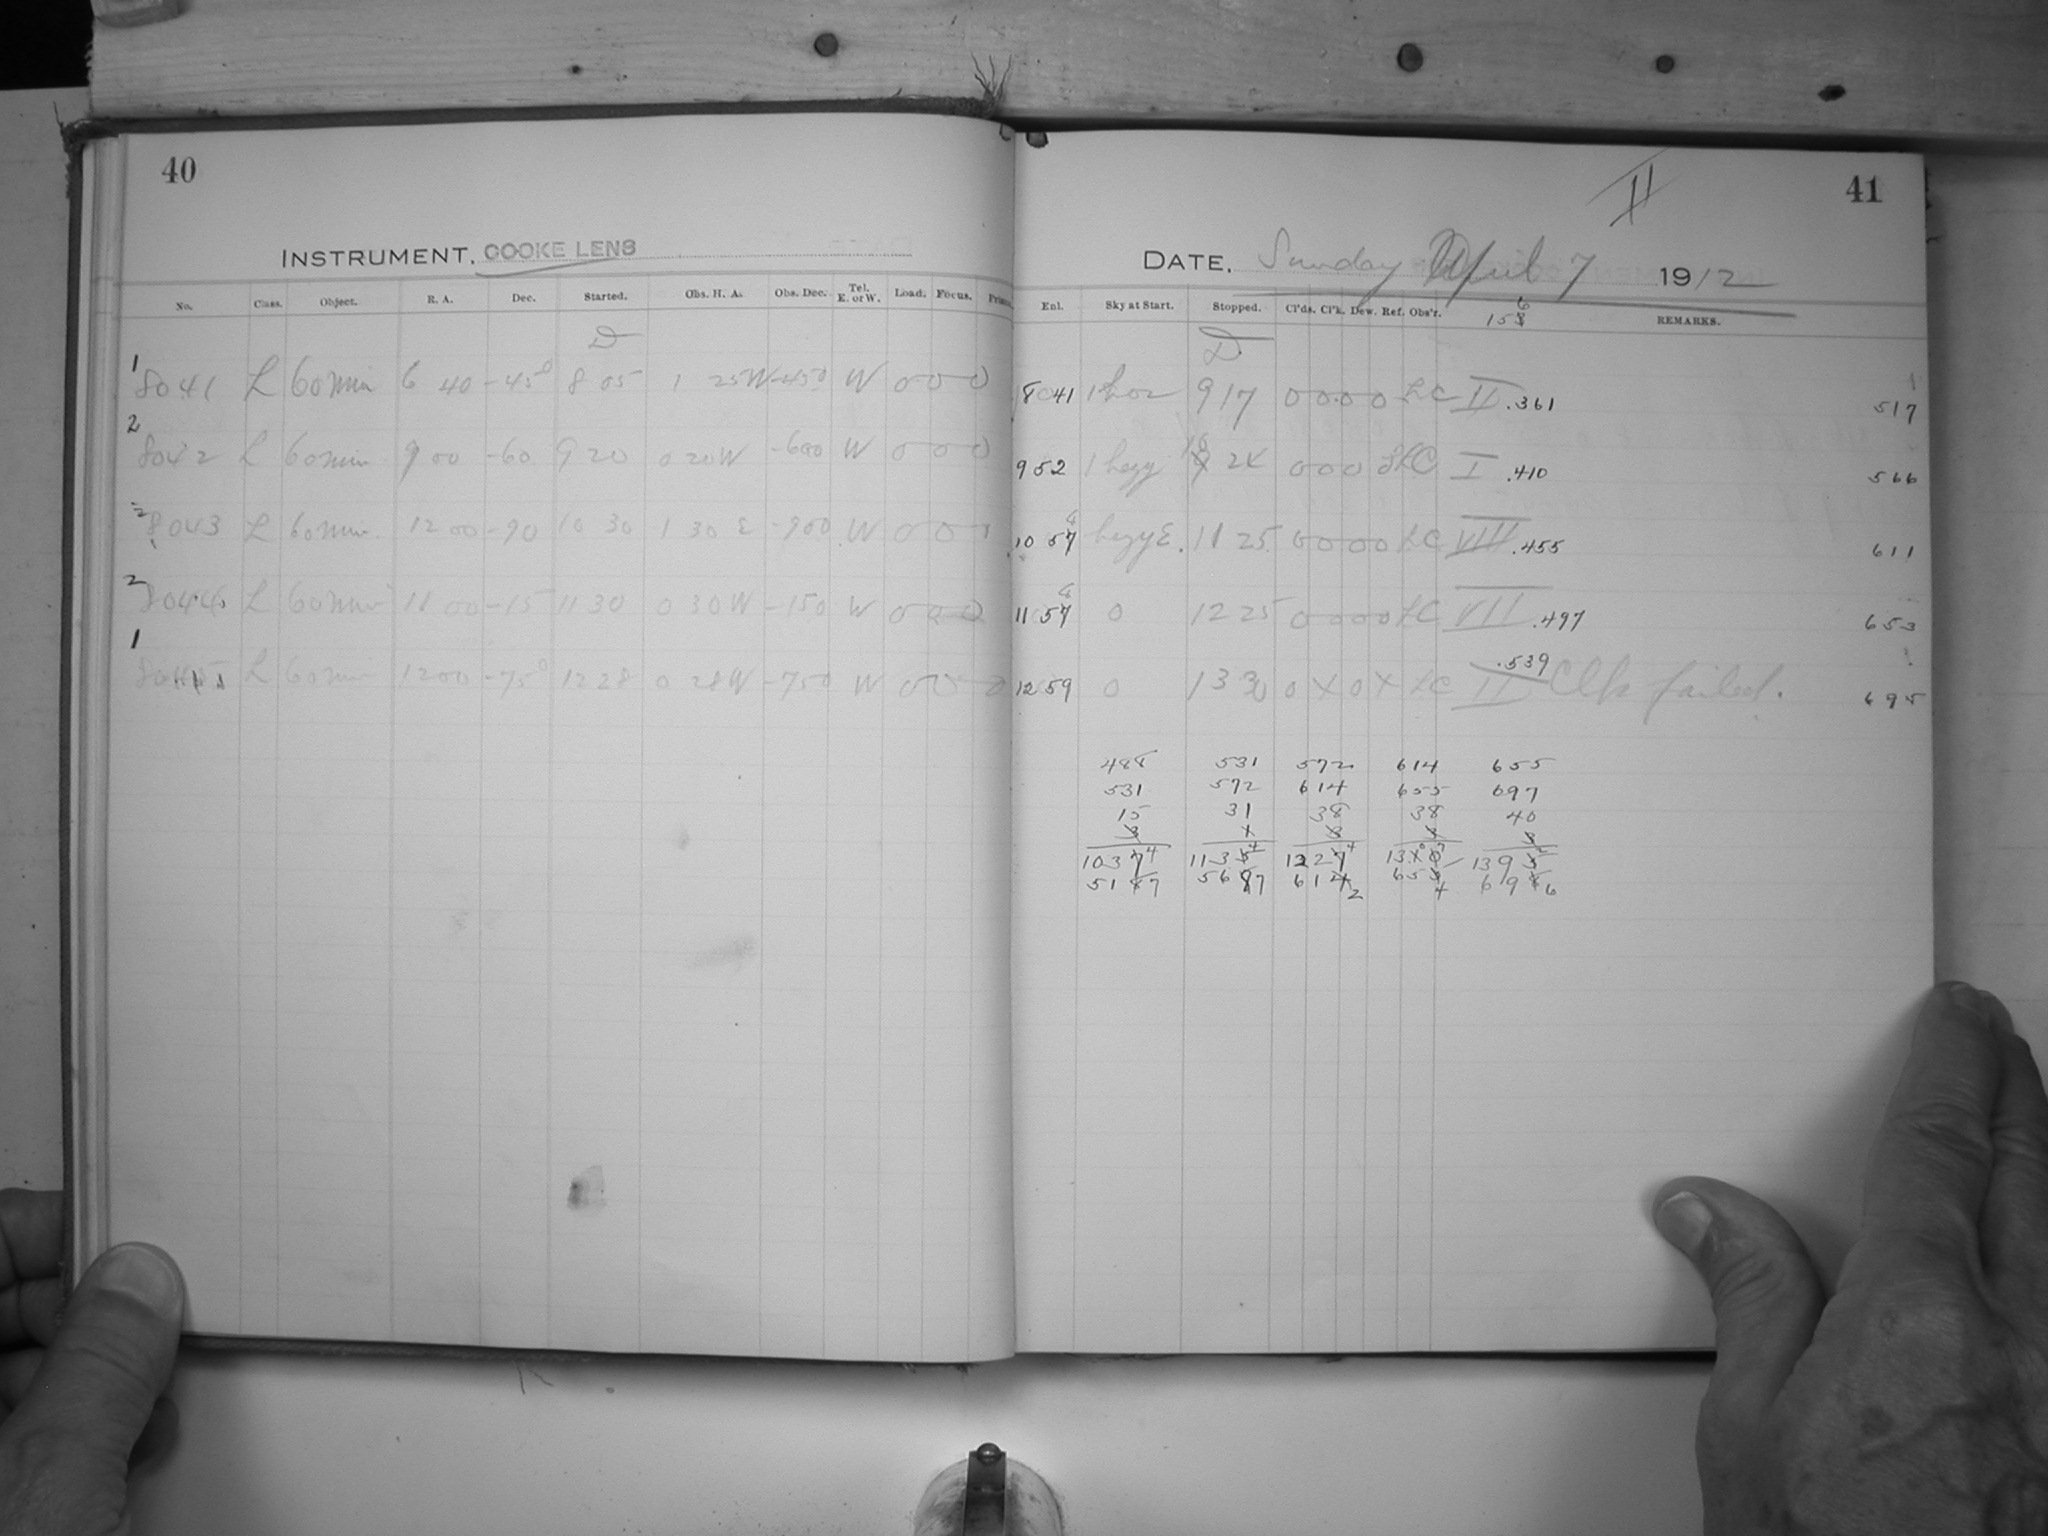 40
INSTRUMENT. COOKE LENS
No. Class. Object. R. A. Dec. Started. Obs. H. A. Obs. Dec. Tel. E. or W. Load. Focus.
1
8041 L 60 min 6 40 -45° 8 05 1 25 W -450 W 0 0 0
2
8042 L 60 min 9 00 -60 9 20 0 20 W -600 W 0 0 0
2
8043 L 60 min. 12 00 -90 10 30 1 30 E -900 W 0 0
2
8044 L 60 min 11 00 -15 11 30 0 30 W -150 W 0 0 0
1
L 60 min 12 00 -75° 12 28 0 28 W -750 W 0 0 0
II 41
DATE. Sunday April 7 1912
Enl. Sky at Start. Stopped. Cl'ds. Cl'k. Dew. Ref. Obs'r. REMARKS.
9 17 0 0 0 0 LC II .361 517
9 52 1 hazy 0 0 0 LC I .410 566
10 57 hazy E. 11 25 0 0 0 0 LC VIII .455 611
11 57 0 12 25 0 0 0 0 LC VII .497 653
12 59 0 13 30 0 X 0 X LC II .539 Clk failed. 695
488 531 572 614 655
531 572 614 655 697
15 31 38 38 40